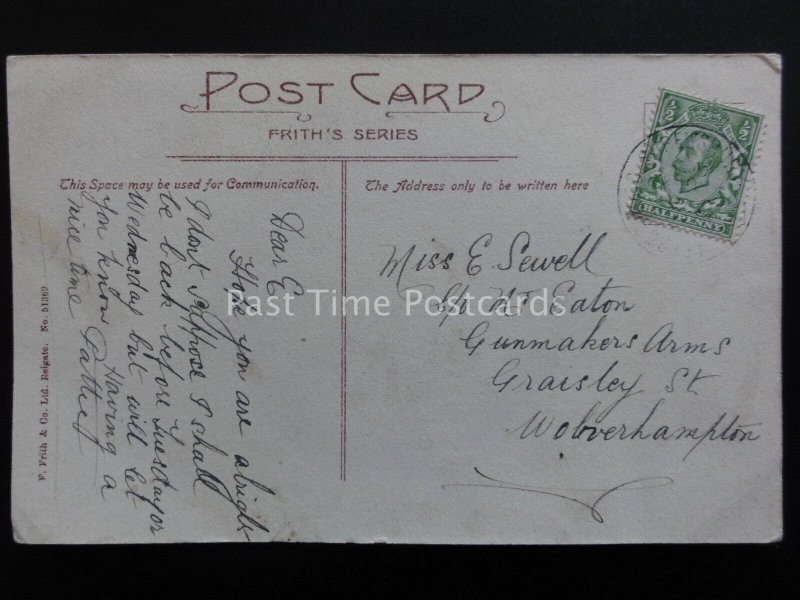 POST CARD
FRITH'S SERIES
This Space may be used for Communication.
The Address only to be written here
Dear E
Hope you are alright
I dont suppose I shall
be back before Tuesday or
Wednesday but will let
you know Having a
nice time
Miss E. Sewell
c/o Mr Eaton
Gunmakers Arms
Graisley St
Wolverhampton
½ ½
HALFPENNY
F. Frith & Co. Ltd. Reigate. No. 51369
Past Time Postcards